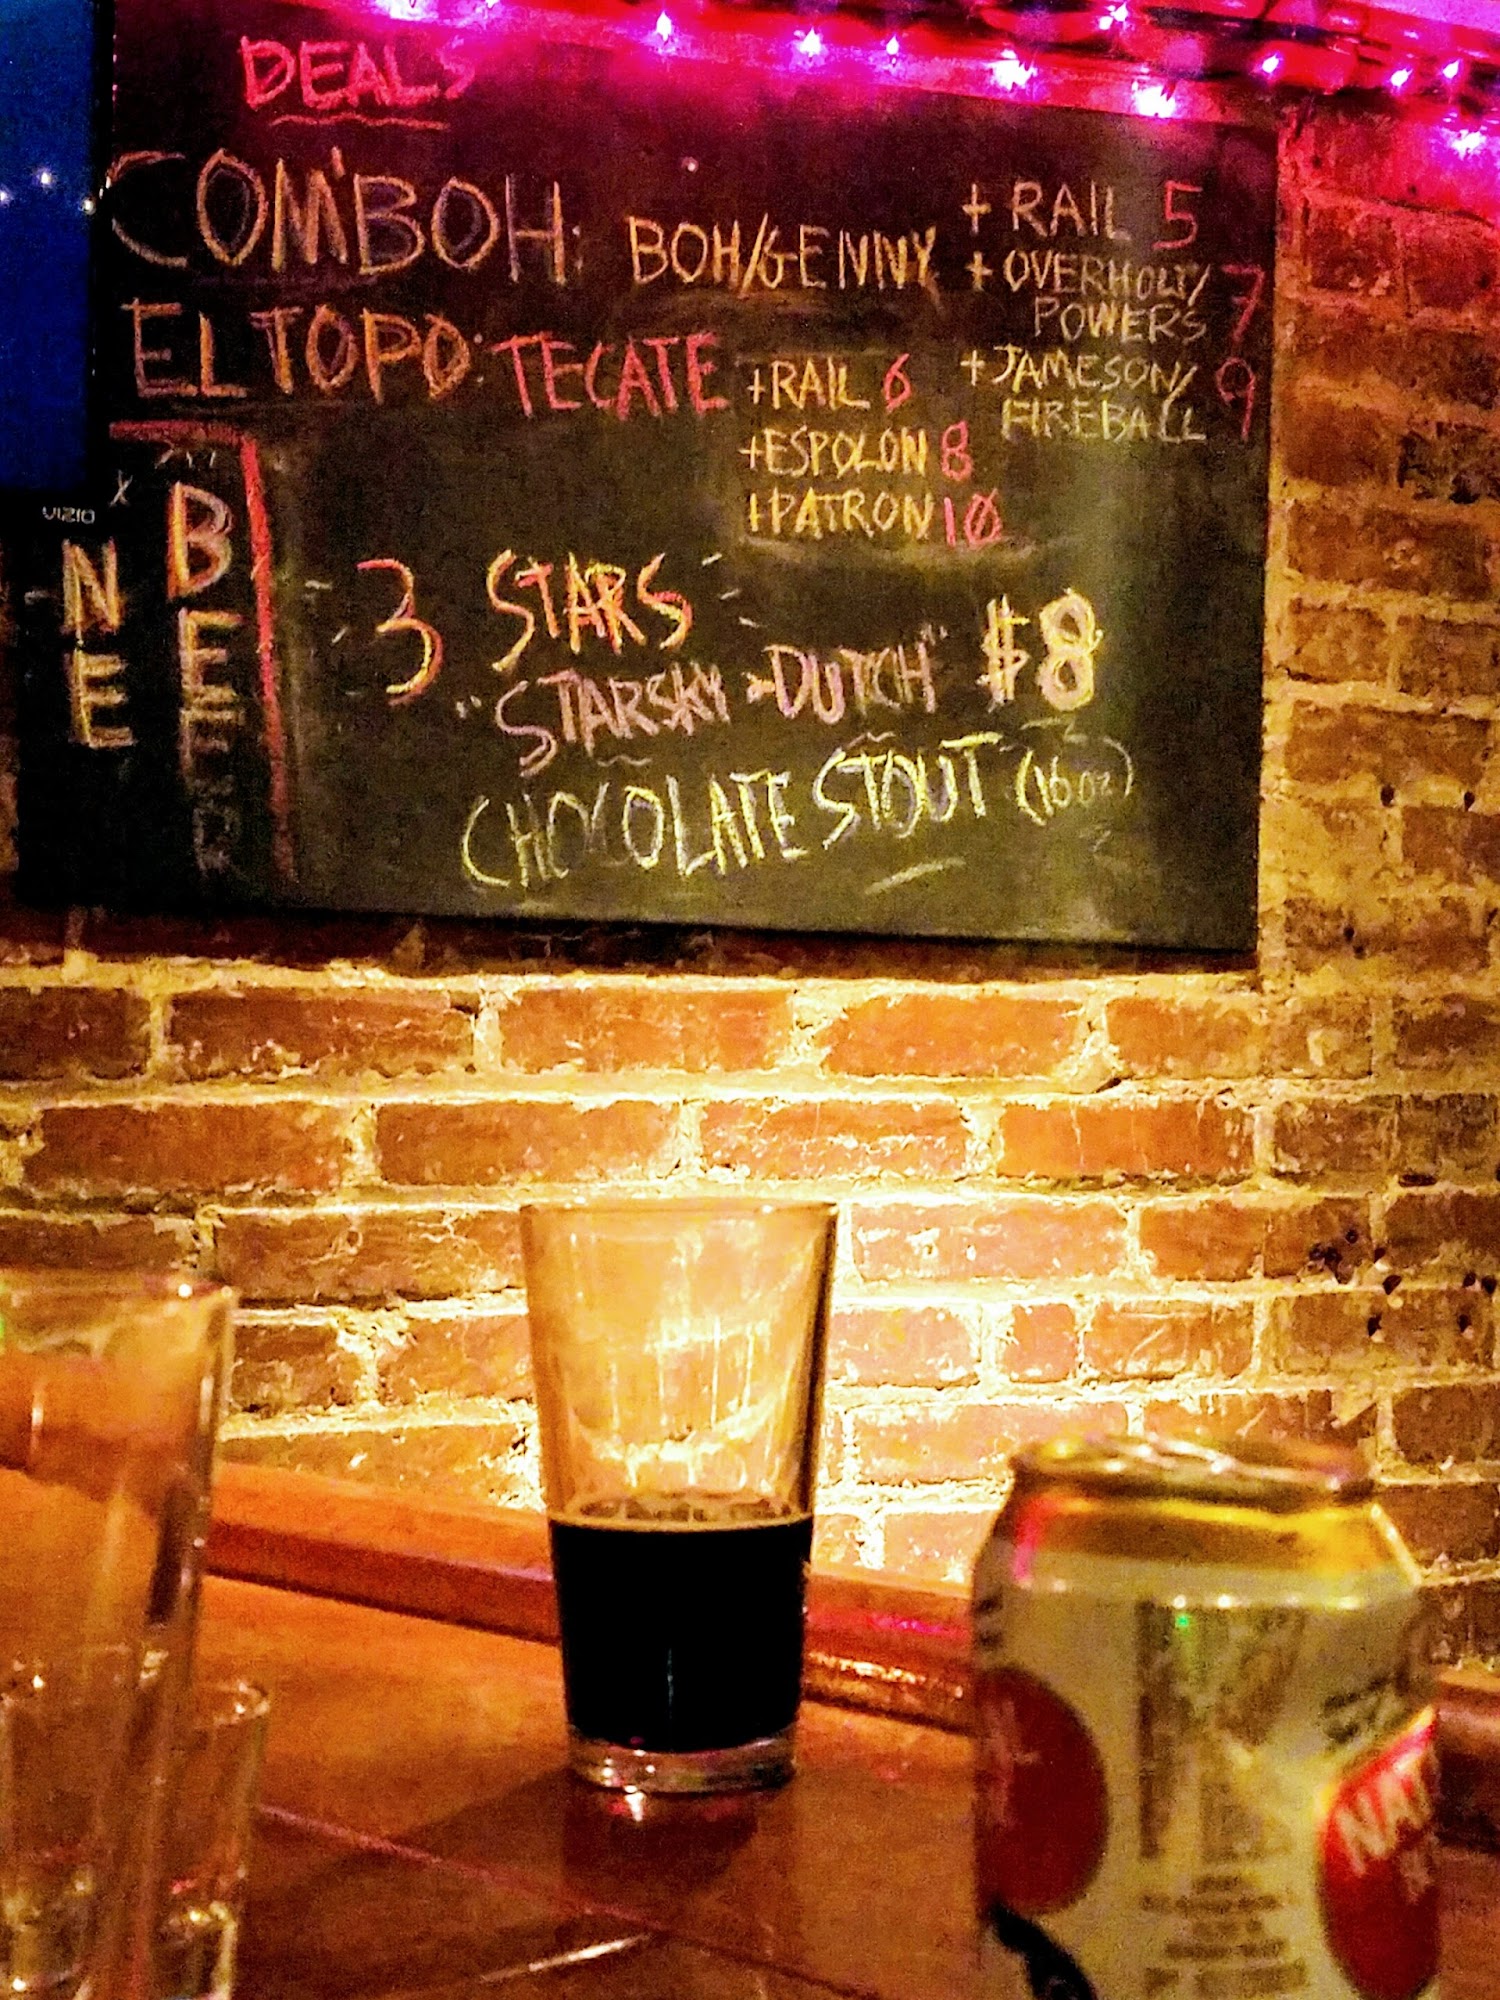 DEALS
COM'BOH: BOH/GENNY + RAIL 5
+ OVERHOLT/ 7
POWERS
+ JAMESON/ 9
FIREBALL
EL TOPO: TECATE +RAIL 6
+ESPOLON 8
+PATRON 10
3 STARS
"STARSKY + DUTCH" $8
CHOCOLATE STOUT (16oz)
VIZIO
NE
BEER
NAT